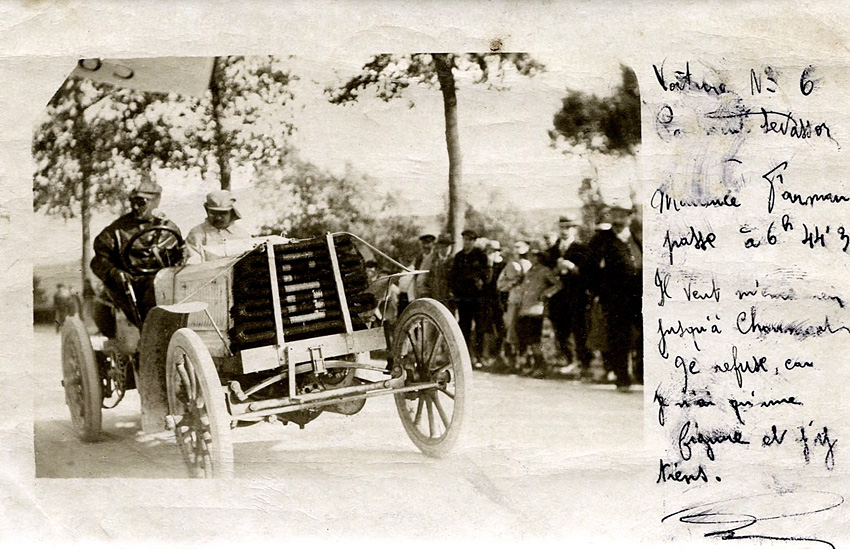 Voiture No 6
Levassor
Maurice Farman
passe à 6h 44'3
Il veut m'emmener
jusqu'à Chaumont
Je refuse, car
Je n'ai qu'une
figure et j'y
tiens.